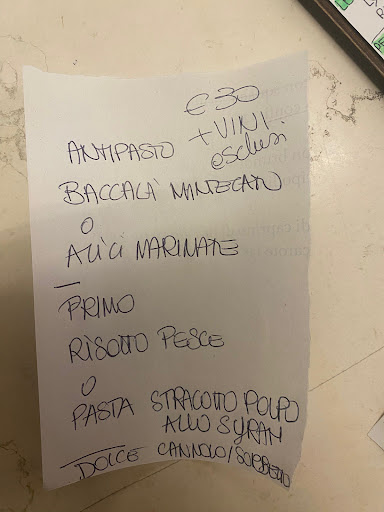 € 30
ANTIPASTO + VINI
esclusi
BACCALA' MANTECATO
O
ALICI MARINATE
PRIMO
RISOTTO PESCE
O
PASTA STRACOTTO POLPO
ALLO SYRAH
DOLCE CANNOLO/SORBETTO